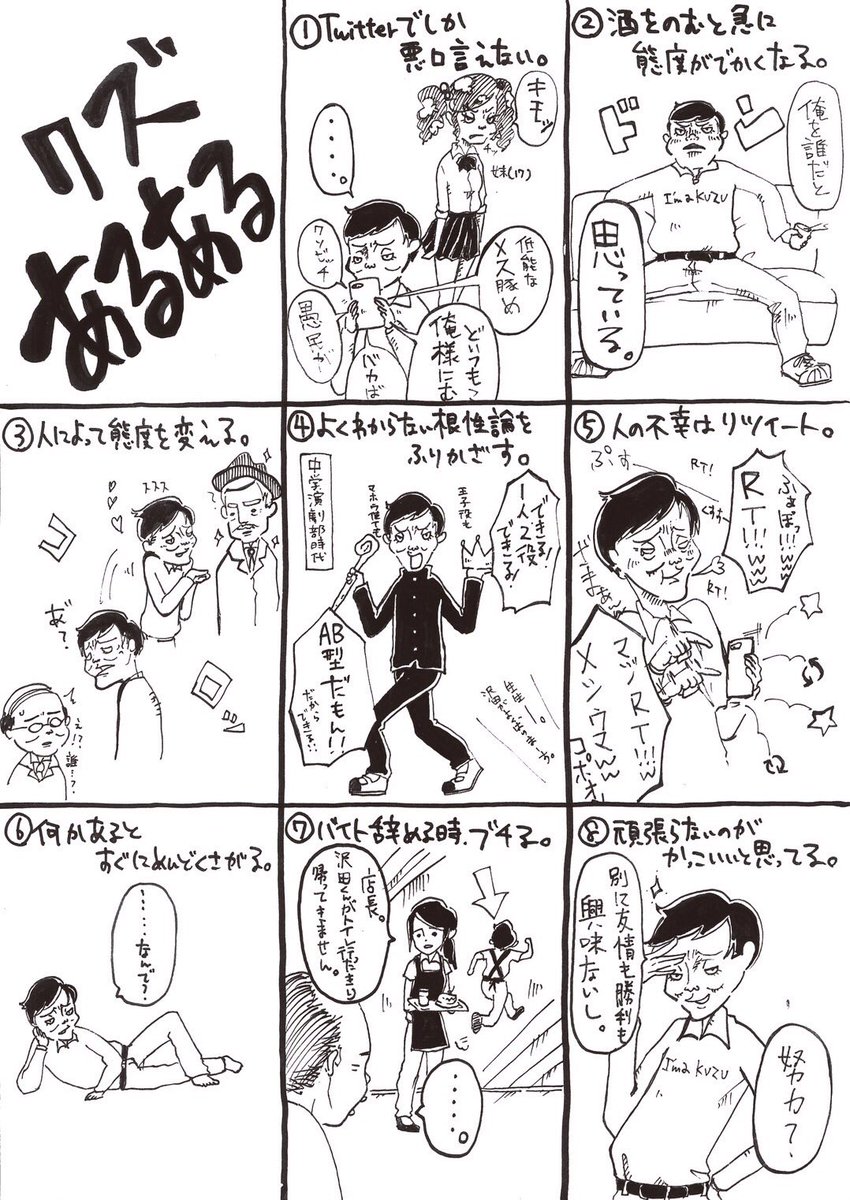 クズ
あるある
①Twitterでしか
悪口言えない。
キモッ
チッ
妹(17)
・・・・。
低能な
メス豚め
クソビッチ
愚民が
バカば
どいつもこ
俺様にむ
②酒をのむと急に
態度がでかくなる。
ドン
俺を誰だと
思っている。
I'm a KUZU
③人によって態度を変える。
ススス
コ
あ゛?
ロ
え!?
誰!?
④よくわからない根性論を
ふりかざす。
中学演劇部時代
王子役も
できる!
1人2役
できる!
AB型だもん!!
だから
できる!!
⑤人の不幸はリツイート。
ぷすー
RT!
くすくす
RT!
ふぉぼっ!!!ww
RT!!!www
ざまぁ
マジRT!!!
メシウマww
コポォ
⑥何かあると
すぐにめんどくさがる。
・・・・・・
なんで?
⑦バイト辞める時、ブチる。
店長。
沢田くんがトイレ行ったきり
帰ってきません。
・・・・。
⑧頑張らないのが
かっこいいと思ってる。
別に友情も勝利も
興味ないし。
I'm a KUZU
努力?